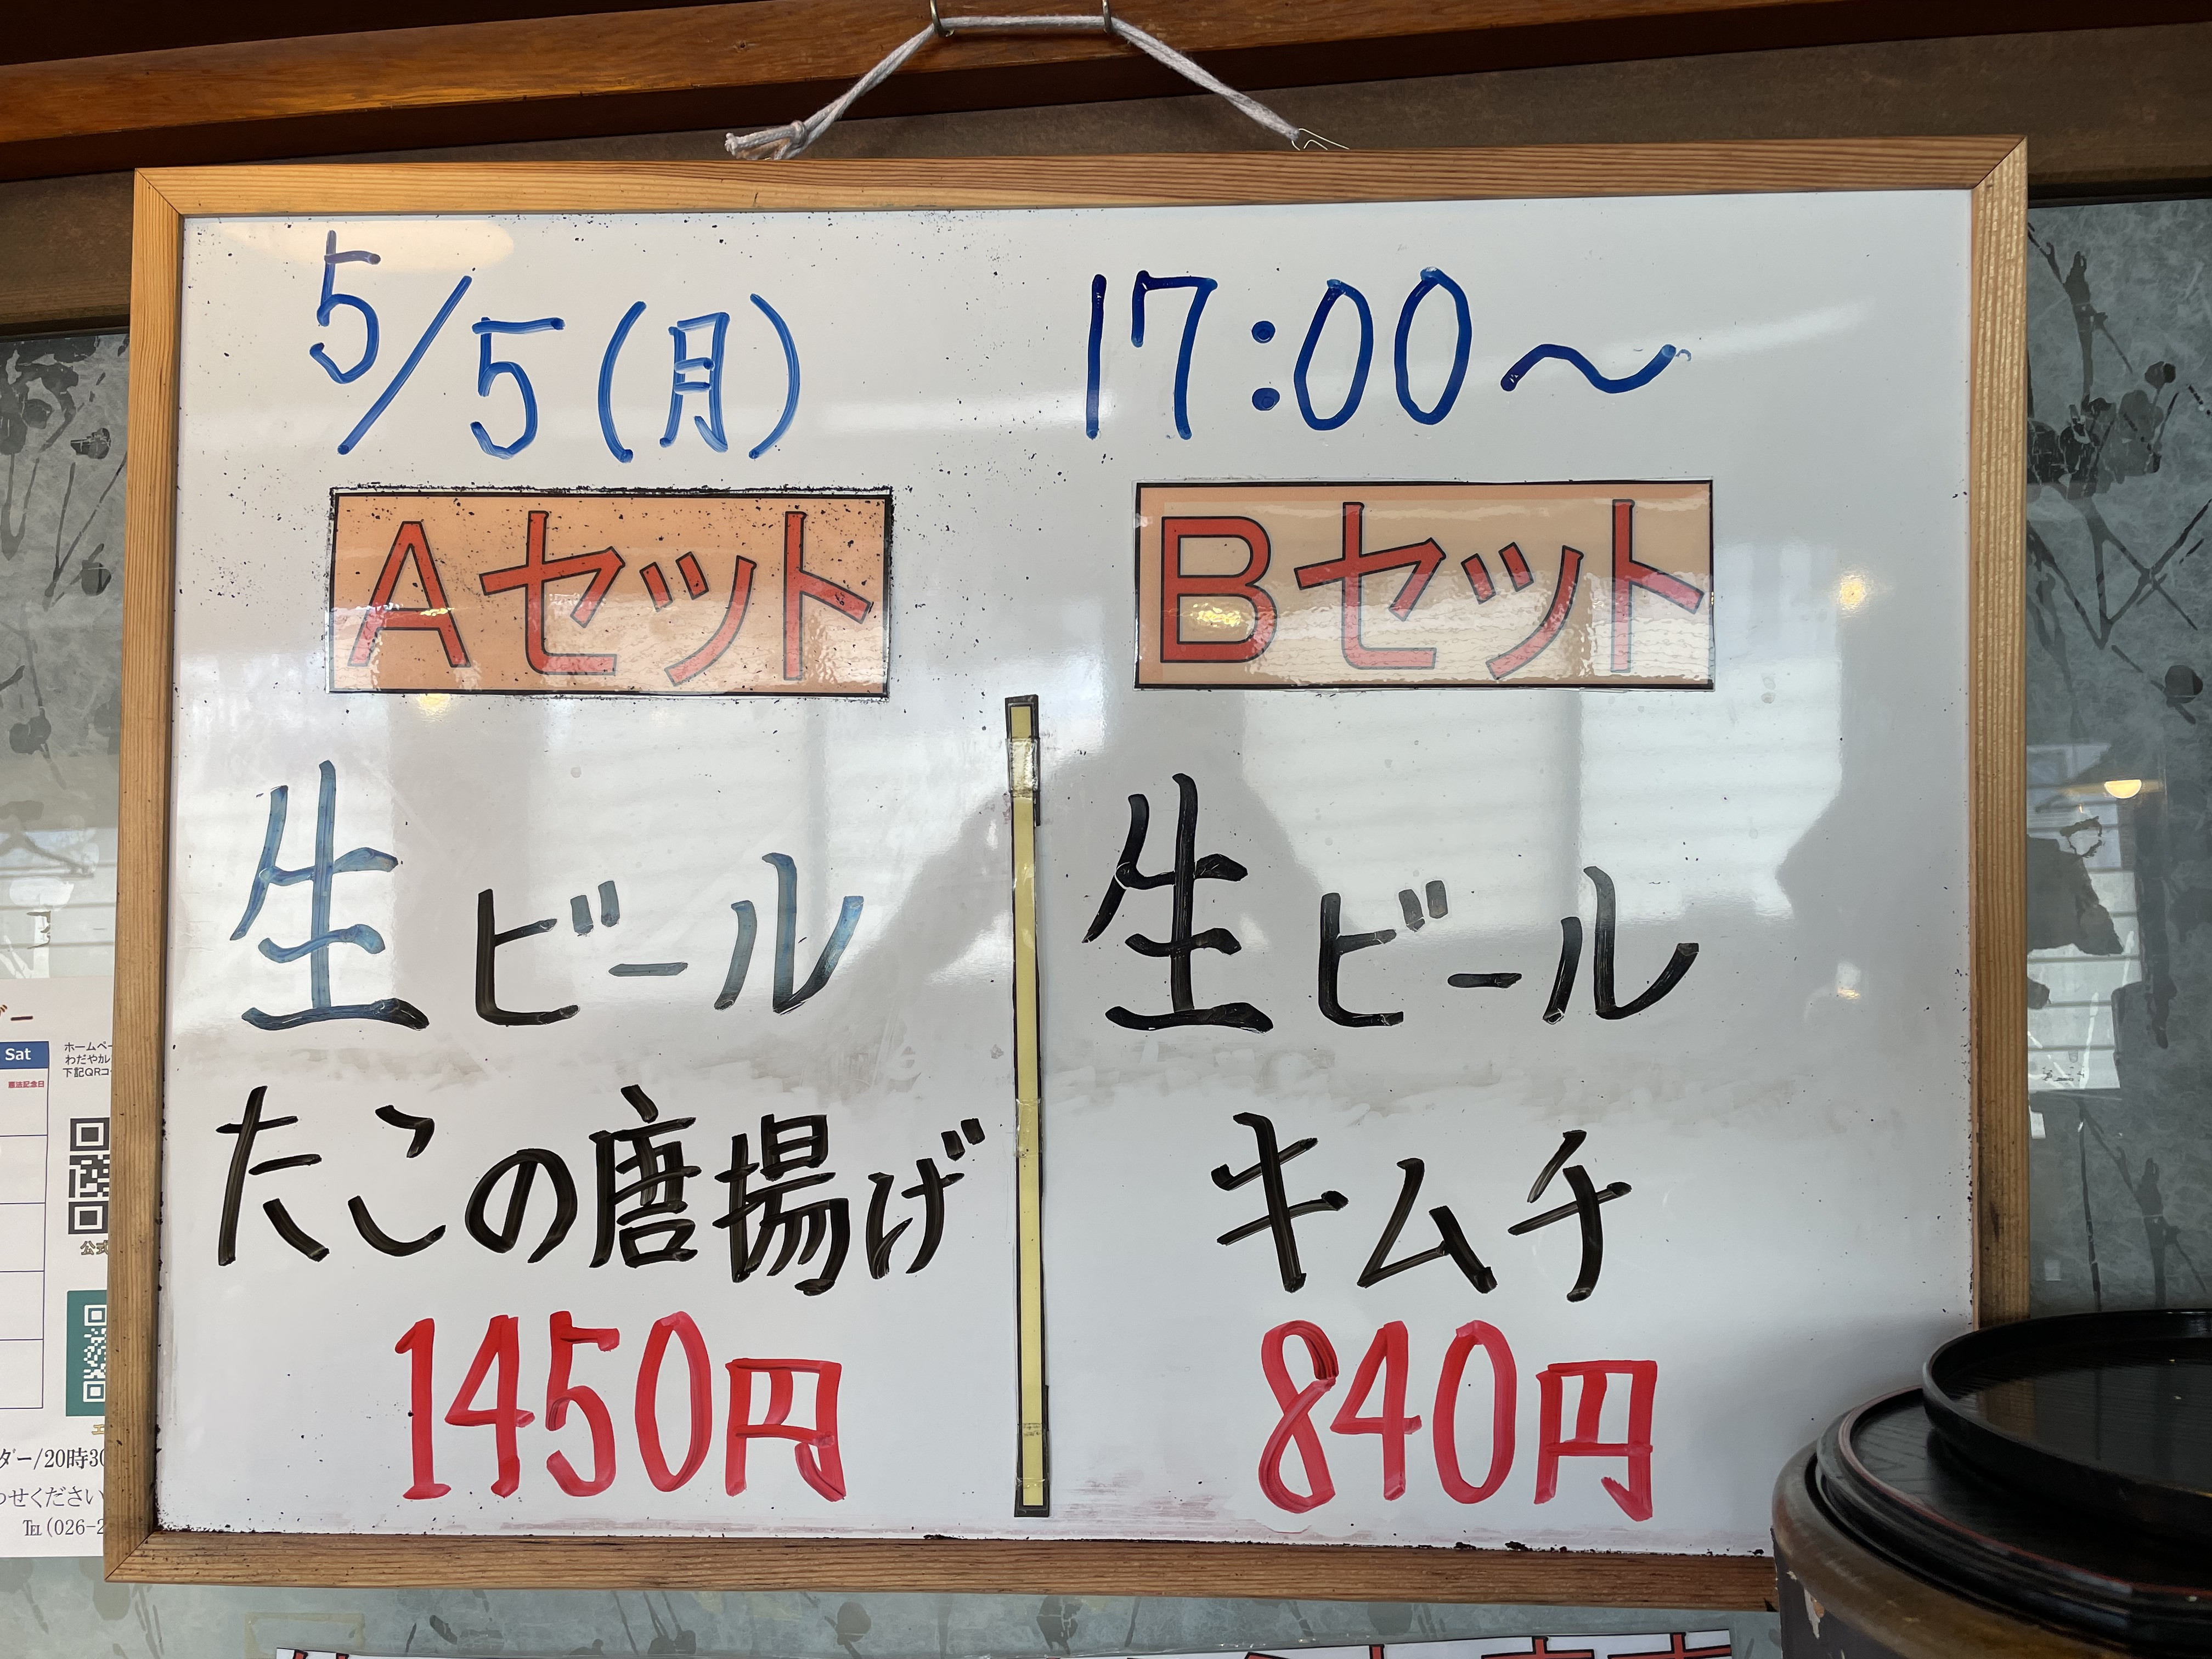 5/5(月) 17:00〜
Aセット
生ビール
たこの唐揚げ
1450円
Bセット
生ビール
キムチ
840円
Sat
憲法記念日
ホームペー
わだやカレ
下記QRコー
公式
ダー/20時30
わせください
TEL(026-2